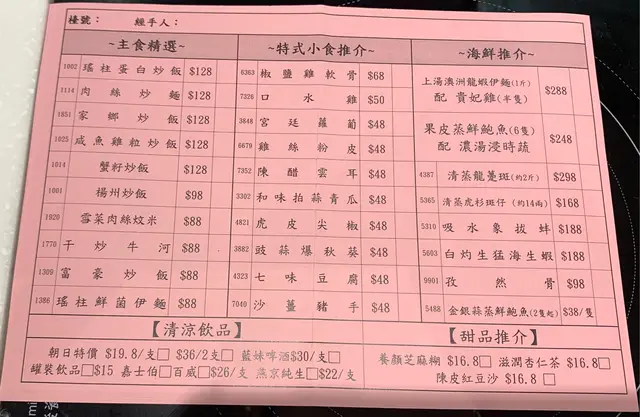 檯號： 經手人：
~主食精選~
1002 瑤柱蛋白炒飯 $128
1114 肉絲炒麵 $128
1851 家鄉炒飯 $128
1025 咸魚雞粒炒飯 $128
1014 蟹籽炒飯 $128
1001 楊州炒飯 $98
1920 雪菜肉絲炆米 $88
1770 干炒牛河 $88
1309 富豪炒飯 $88
1386 瑤柱鮮菌伊麵 $88
~特式小食推介~
6363 椒鹽雞軟骨 $68
7326 口水雞 $50
3848 宮廷蘿蔔 $48
6679 雞絲粉皮 $48
7352 陳醋雲耳 $48
3302 和味拍蒜青瓜 $48
4821 虎皮尖椒 $48
3882 豉蒜爆秋葵 $48
4323 七味豆腐 $48
7040 沙薑豬手 $48
~海鮮推介~
上湯澳洲龍蝦伊麵(1斤)
配 貴妃雞(半隻) $288
果皮蒸鮮鮑魚(6隻)
配 濃湯浸時蔬 $248
4387 清蒸龍躉斑(約2斤) $298
5365 清蒸虎杉斑仔 (約14兩) $168
5310 吸水象拔蚌 $188
5603 白灼生猛海生蝦 $188
9901 孜然骨 $98
5488 金銀蒜蒸鮮鮑魚(2隻起) $38/隻
【清涼飲品】
朝日特價 $19.8/支□ $36/2支□ 藍妹啤酒$30/支□
罐裝飲品□$15 嘉士伯□百威□$26/支 燕京純生□$22/支
【甜品推介】
養顏芝麻糊 $16.8□ 滋潤杏仁茶 $16.8□
陳皮紅豆沙 $16.8 □